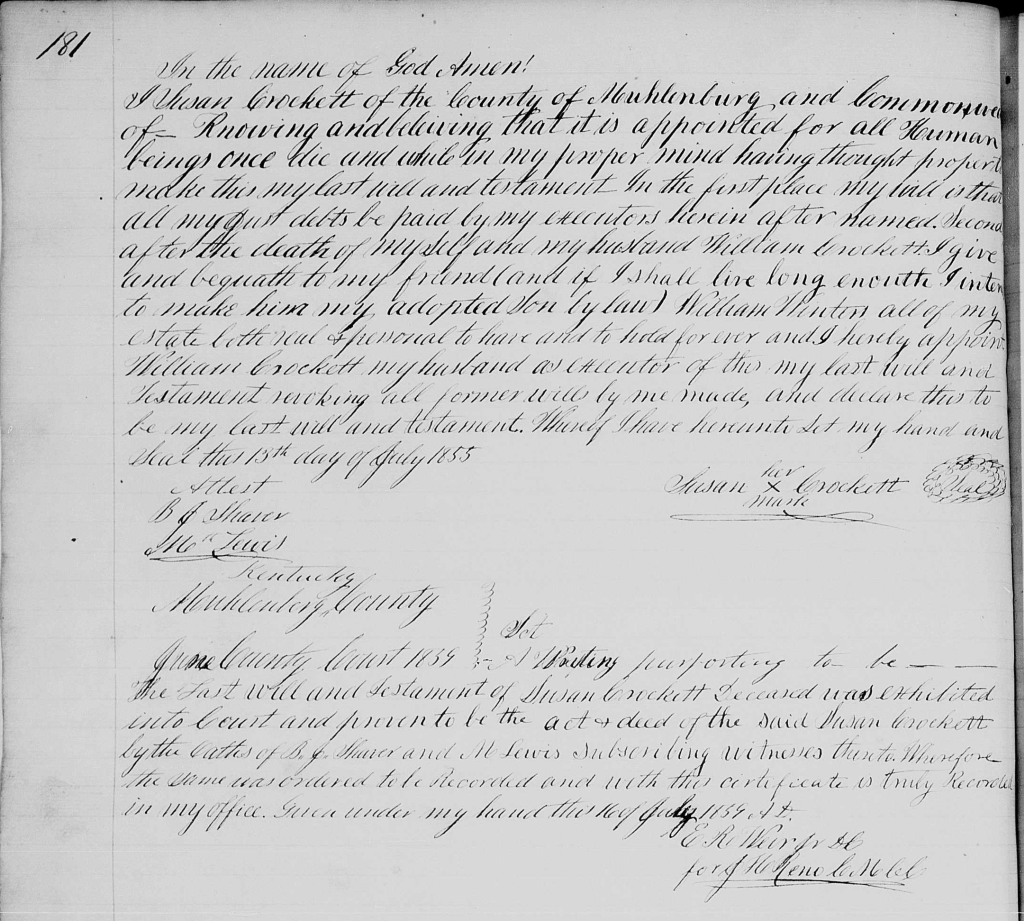 181
In the name of God Amen!
I Susan Crockett of the County of Muhlenburg and Commonwea
of— Knowing and beleiving that it is appointed for all Human
beings once die and while in my proper mind having thought proper to
make this my last will and testament In the first place my will is that
all my just debts be paid by my executors herein after named. Second
after the death of myself and my husband William Crockett I give
and bequath to my friend (and if I shall live long enouth I inten
to make him my adopted Son by law) William Winters all of my
estate both real & personal to have and to hold for ever and I hereby appoin
William Crockett my husband as executor of this my last will and
Testament revoking all former wills by me made, and declare this to
be my last will and testament. Whereof I have hereunto Set my hand and
Seal this 15th day of July 1855
her
Susan X Crockett Seal
mark
Attest
B J Shaver
M Lewis
Kentucky
Muhlenberg County
Sct
June County Court 1859 - A Writing purporting to be — —
The Last Will and Testament of Susan Crockett Deceased was exhibited
into Court and proven to be the act & deed of the said Susan Crockett
by the Oaths of B. J. Shaver and M Lewis subscribing witnesses thereto. Wherefore
the same was ordered to be Recorded and with this certificate is truly Recorded
in my office. Given under my hand this 16 of July 1859
E R Weir Jr D C
for J H Reno C M C C